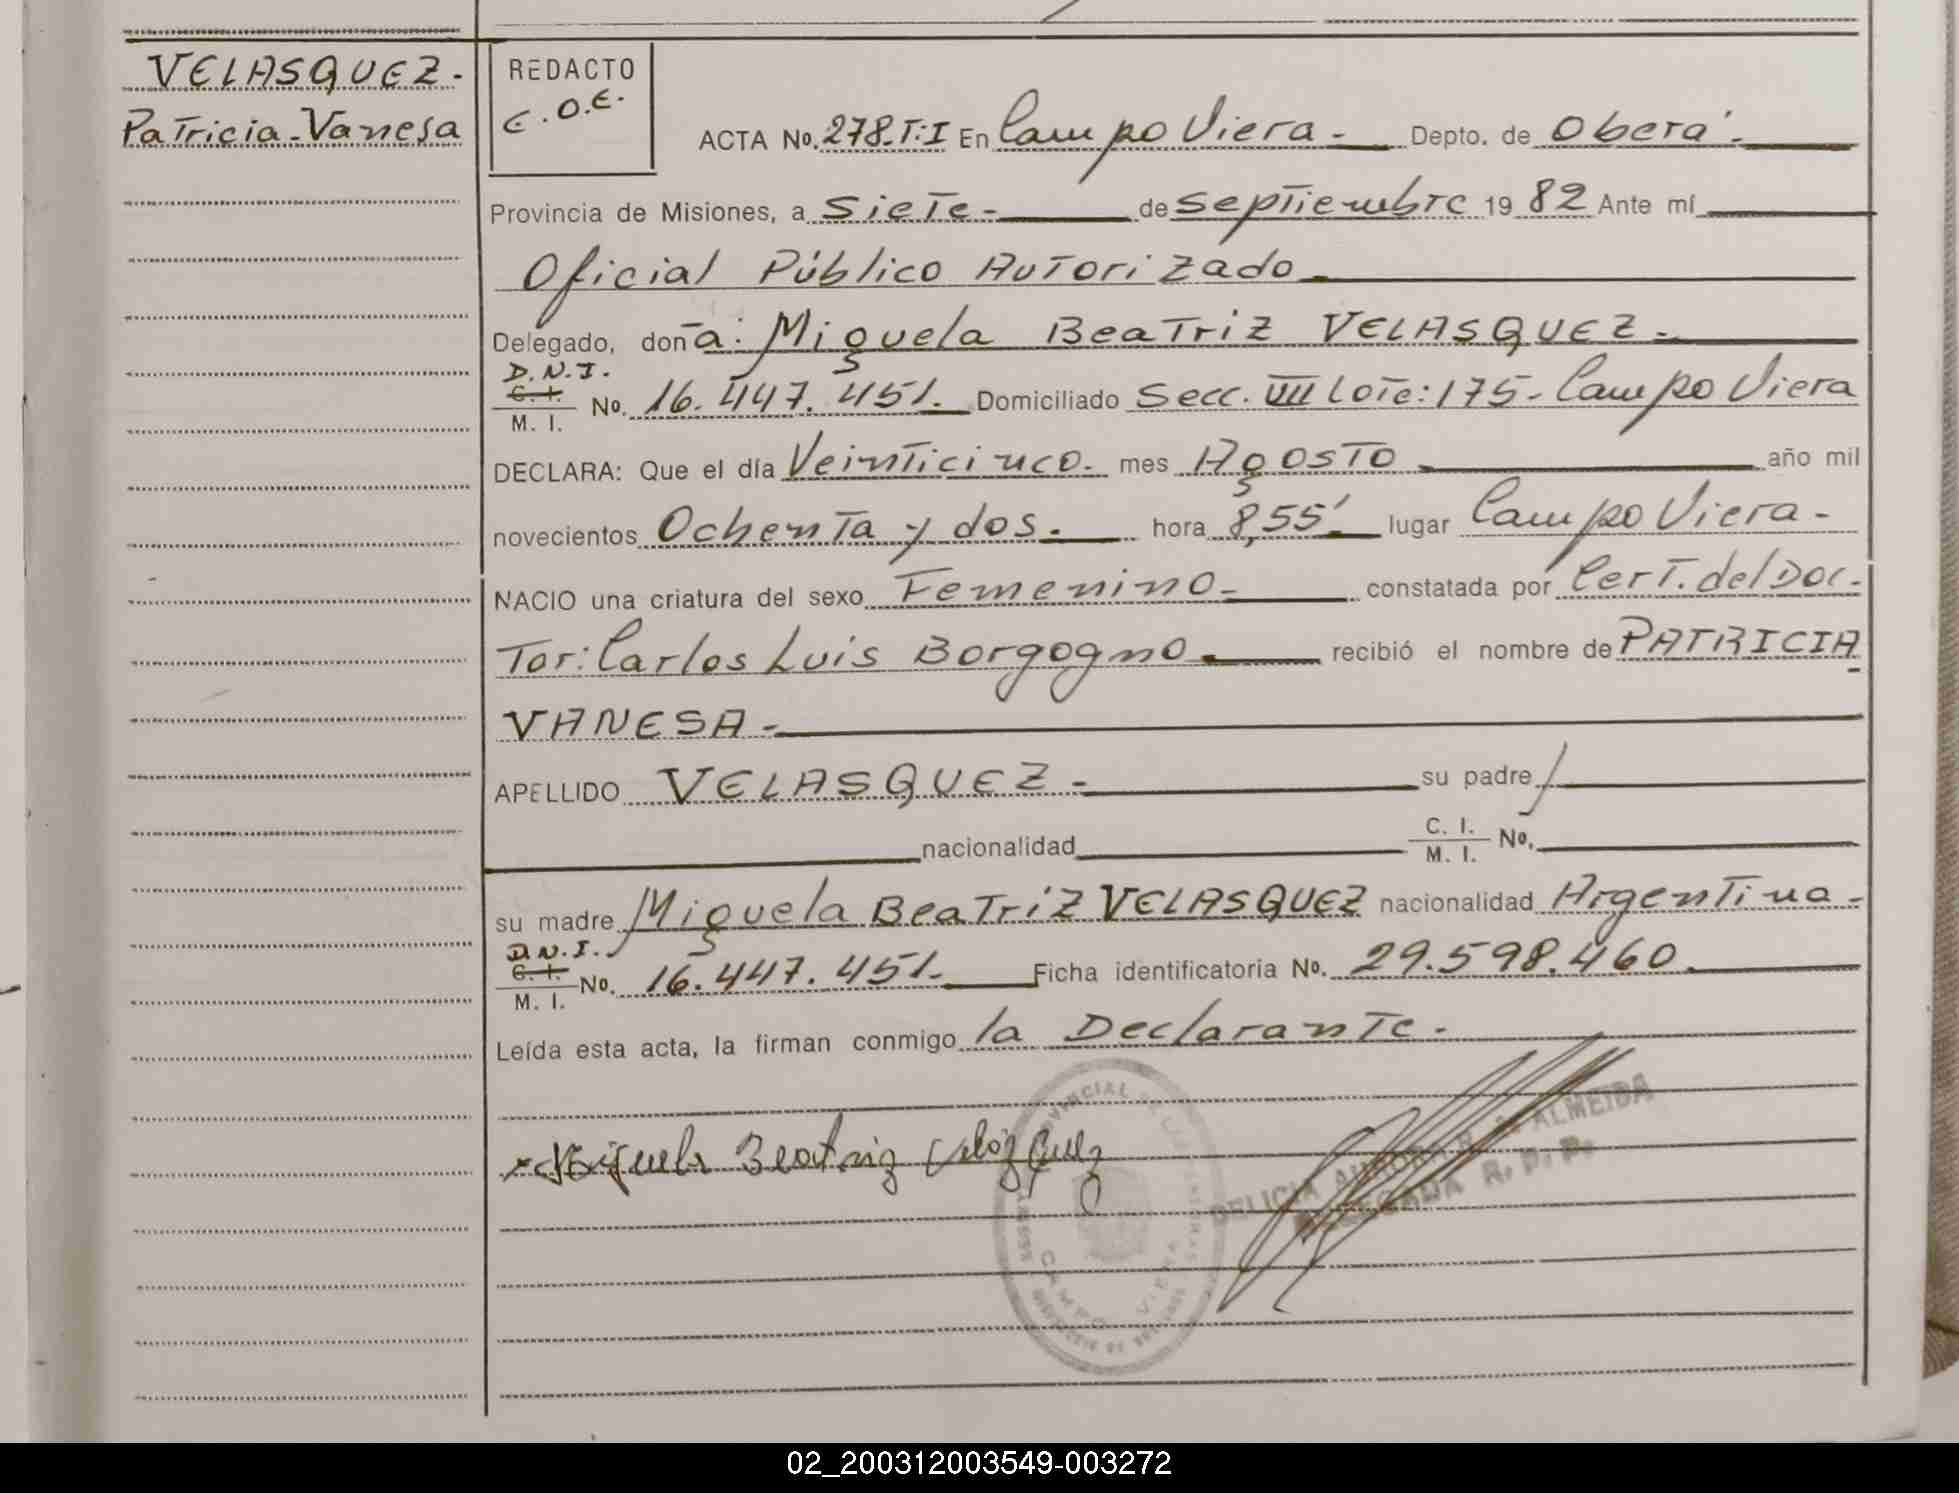 VELASQUEZ.
Patricia-Vanesa
REDACTO
E.O.E.
ACTA No. 278.T:I En Campo Viera.- Depto. de Oberá.-
Provincia de Misiones, a Siete.- de Septiembre 19 82 Ante mí
Oficial Público Autorizado.
Delegado, doña: Miguela Beatriz VELASQUEZ.-
D.N.I.
C. I.
M. I.
No. 16.447.451. Domiciliado Secc. VIII Lote: 175- Campo Viera
DECLARA: Que el día Veinticinco.- mes Agosto año mil
novecientos Ochenta y dos.- hora 8,55' lugar Campo Viera.-
NACIO una criatura del sexo Femenino.- constatada por Cert. del Doc-
tor: Carlos Luis Borgogno recibió el nombre de PATRICIA
VANESA.-
APELLIDO VELASQUEZ.- su padre
nacionalidad C. I. M. I. No.
su madre Miguela Beatriz VELASQUEZ nacionalidad Argentina.-
D.N.I.
C. I.
M. I.
No. 16.447.451.- Ficha identificatoria No. 29.598.460.
Leída esta acta, la firman conmigo la Declarante.-
Miguela Beatriz Velázquez
PROVINCIAL DE LAS PERSONAS
CAMPO VIERA
DELICIA AURORA R. de ALMEIDA
DELEGADA R. P. P.
02_200312003549-003272